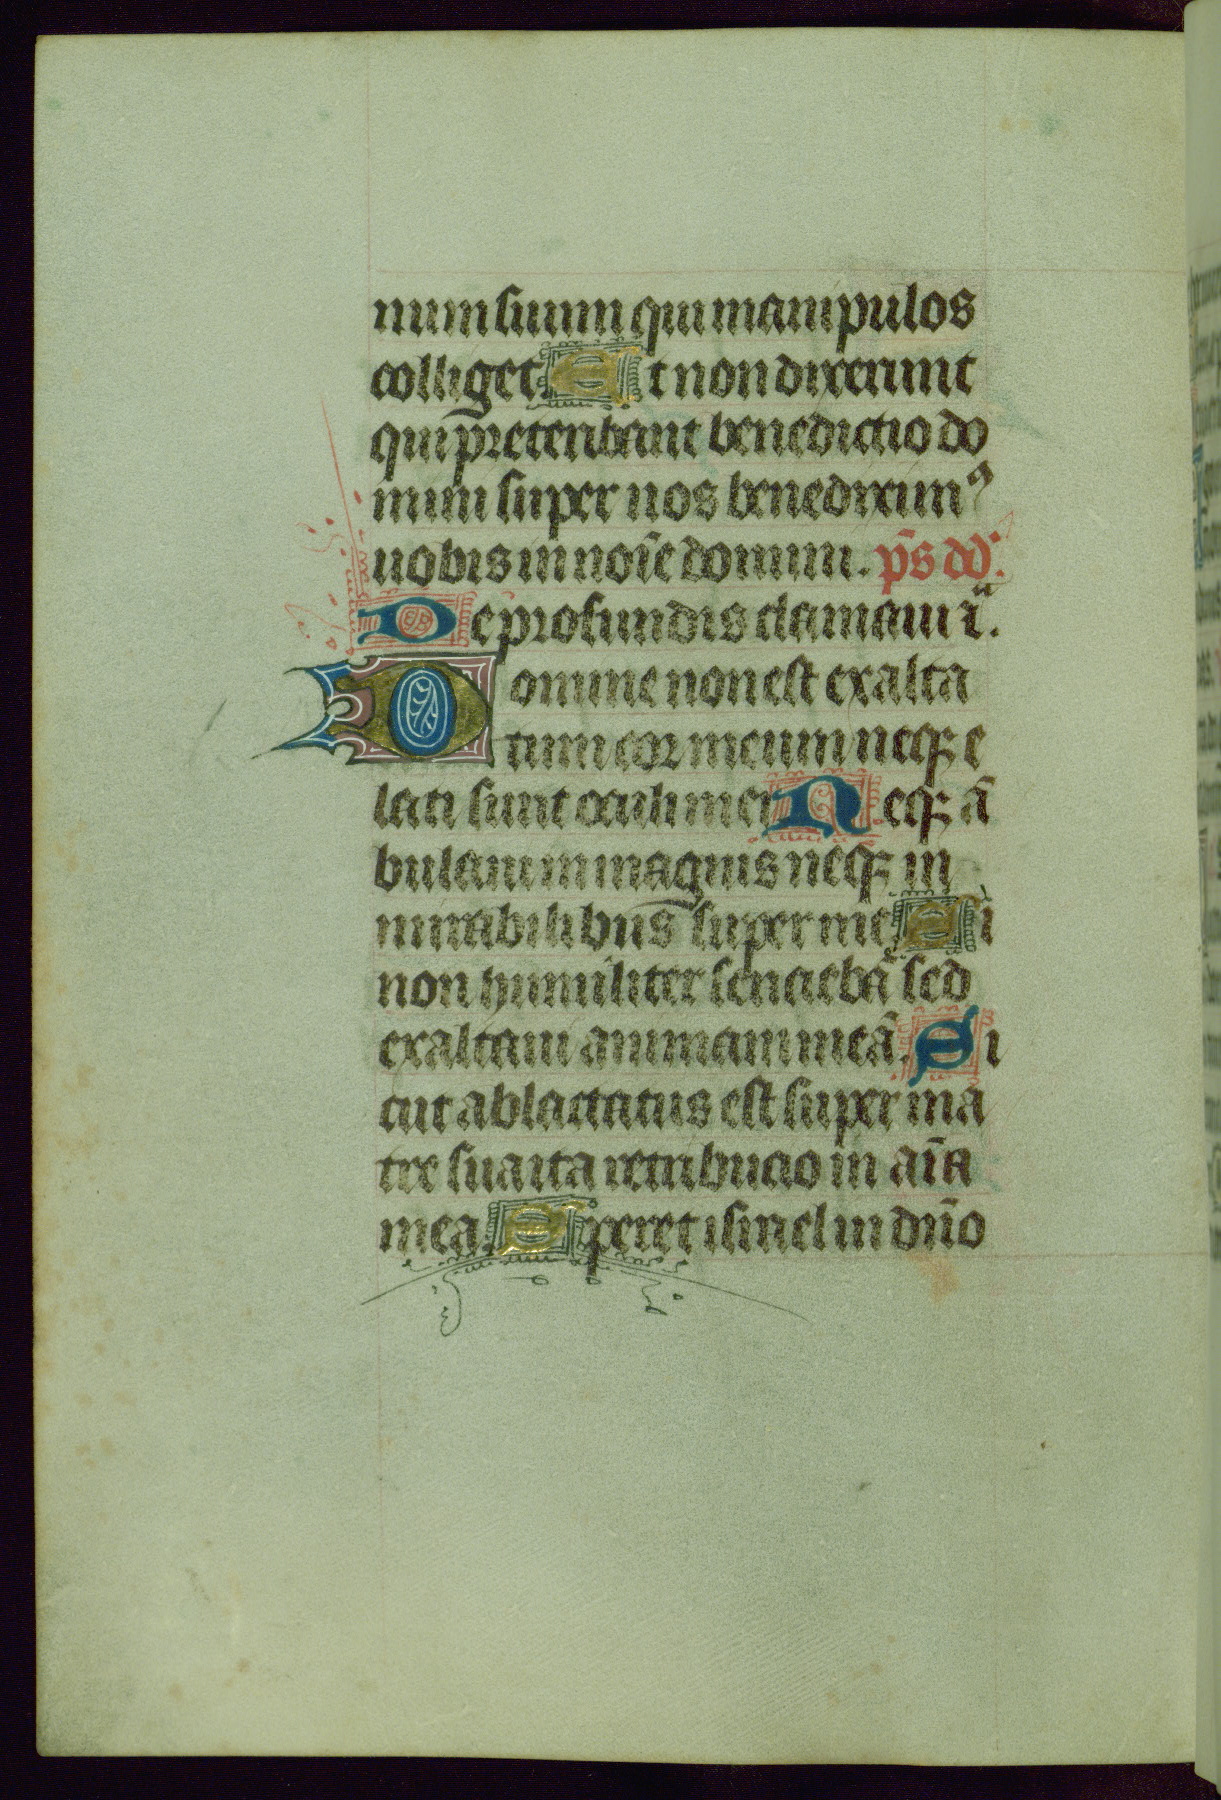 num suum qui manipulos
colliget Et non dixerunt
qui preteribant benedictio do
mini super nos benediximꝰ
uobis in noīe domini. ps̄ dd̄.
De profundis clamaui iͣ.
Domine non est exalta
tum cor meum neqꝫ e
lati sunt oculi mei Neqꝫ ā
bulaui in magnis neqꝫ in
mirabilibus super me Si
non humiliter senciebā sed
exaltaui animam meā. Si
cut ablactatus est super ma
tre sua ita retribucio in aīa
mea Speret israel in dn̄o